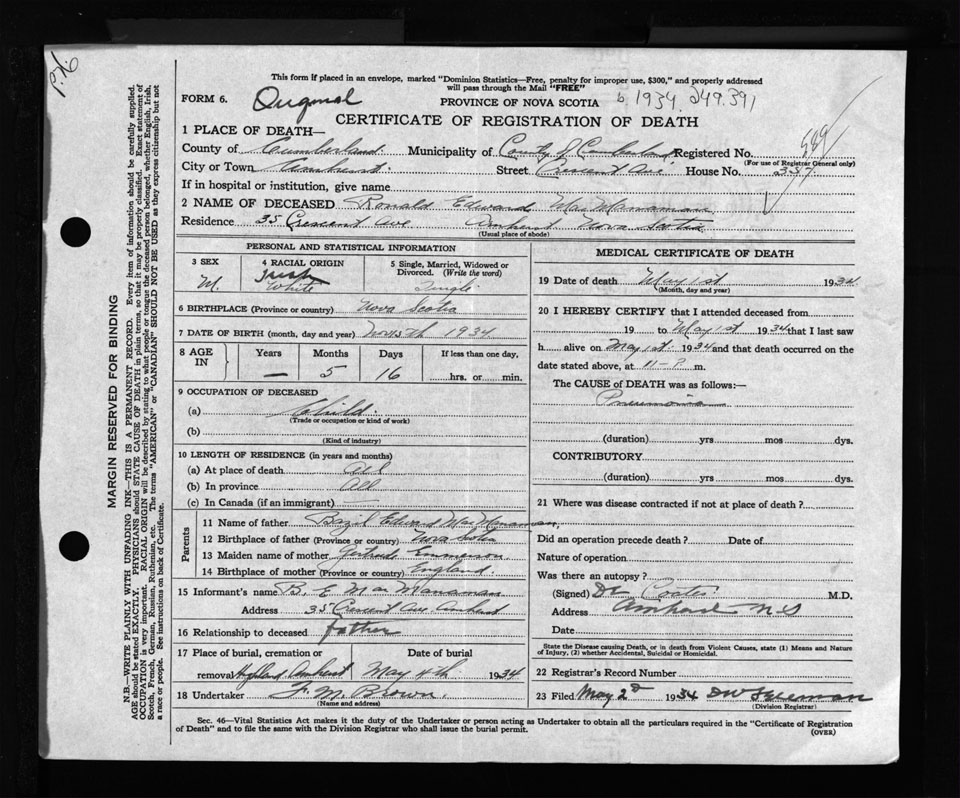 This form if placed in an envelope, marked "Dominion Statistics—Free, penalty for improper use, $300," and properly addressed
will pass through the Mail "FREE"
FORM 6. Original
PROVINCE OF NOVA SCOTIA 1934. 249.391
CERTIFICATE OF REGISTRATION OF DEATH
1 PLACE OF DEATH—
County of Cumberland Municipality of County of Cumberland Registered No.
(For use of Registrar General only)
City or Town Amherst Street Crescent Ave House No.
If in hospital or institution, give name
2 NAME OF DECEASED Ronald Edward MacManaman
Residence 35 Crescent Ave Amherst Nova Scotia
(Usual place of abode)
PERSONAL AND STATISTICAL INFORMATION
3 SEX
M.
4 RACIAL ORIGIN
Irish
White
5 Single, Married, Widowed or Divorced. (Write the word)
Single
6 BIRTHPLACE (Province or country) Nova Scotia
7 DATE OF BIRTH (month, day and year) 1934
8 AGE IN
Years Months Days If less than one day.
— 5 16 hrs. or min.
9 OCCUPATION OF DECEASED
(a) Child.
(Trade or occupation or kind of work)
(b)
(Kind of industry)
10 LENGTH OF RESIDENCE (in years and months)
(a) At place of death All
(b) In province All
(c) In Canada (if an immigrant)
Parents
11 Name of father Bazil Edward MacManaman,
12 Birthplace of father (Province or country) Nova Scotia
13 Maiden name of mother Gertrude Emmerson
14 Birthplace of mother (Province or country) England.
15 Informant's name B. E MacManaman
Address 35 Crescent Ave Amherst
16 Relationship to deceased father
17 Place of burial, cremation or removal Highland Amherst
Date of burial
May 4th 1934
18 Undertaker F. M. Brown.
(Name and address)
MEDICAL CERTIFICATE OF DEATH
19 Date of death May 1st 1934
(Month, day and year)
20 I HEREBY CERTIFY that I attended deceased from
19 to May 1st 1934 that I last saw
h alive on May 1st 1934 and that death occurred on the
date stated above, at 11- P m.
The CAUSE of DEATH was as follows:—
Pneumonia
(duration) yrs mos dys.
CONTRIBUTORY
(duration) yrs mos dys.
21 Where was disease contracted if not at place of death?
Did an operation precede death? Date of
Nature of operation
Was there an autopsy?
(Signed) Dr Coates M.D.
Address Amherst N.S
Date
State the Disease causing Death, or in death from Violent Causes, state (1) Means and Nature
of Injury, (2) whether Accidental, Suicidal or Homicidal.
22 Registrar's Record Number
23 Filed May 2d 1934 DW Freeman
(Division Registrar)
Sec. 46—Vital Statistics Act makes it the duty of the Undertaker or person acting as Undertaker to obtain all the particulars required in the "Certificate of Registration
of Death" and to file the same with the Division Registrar who shall issue the burial permit.
(OVER)
MARGIN RESERVED FOR BINDING
N.B.—WRITE PLAINLY WITH UNFADING INK—THIS IS A PERMANENT RECORD. Every item of information should be carefully supplied.
AGE should be stated EXACTLY. PHYSICIANS should STATE CAUSE OF DEATH in plain terms, so that it may be properly classified. Exact statement of
OCCUPATION is very important. RACIAL ORIGIN will be described by stating to what people or tongue the deceased person belonged, whether English, Irish,
Scotch, French, German, Russian, Ruthenian, etc. The terms "AMERICAN" or "CANADIAN" SHOULD NOT BE USED as they express citizenship but not
a race or people. See instructions on back of Certificate.